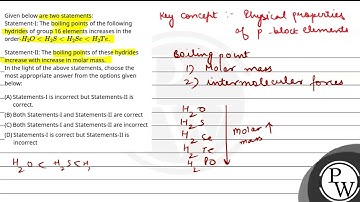 Given below are two statements:
Statement-I: The boiling points of the following
hydrides of group 16 elements increases in the
order-H₂O < H₂S < H₂Se < H₂Te.
Statement-II: The boiling points of these hydrides
increase with increase in molar mass.
In the light of the above statements, choose the
most appropriate answer from the options given
below:
(A) Statements-I is incorrect but Statements-II is
correct.
(B) Both Statements-I and Statements-II are correct
(C) Both Statements-I and Statements-II are incorrect
(D) Statements-I is correct but Statements-II is
incorrect
H₂O < H₂S < H,
Key concept :- Physical properties
of p-block elements
Boiling point
1) Molar mass
2) intermolecular forces
H₂O
H₂S
H₂Se
H₂Te
H₂Po
Molar
mass ↑
PW